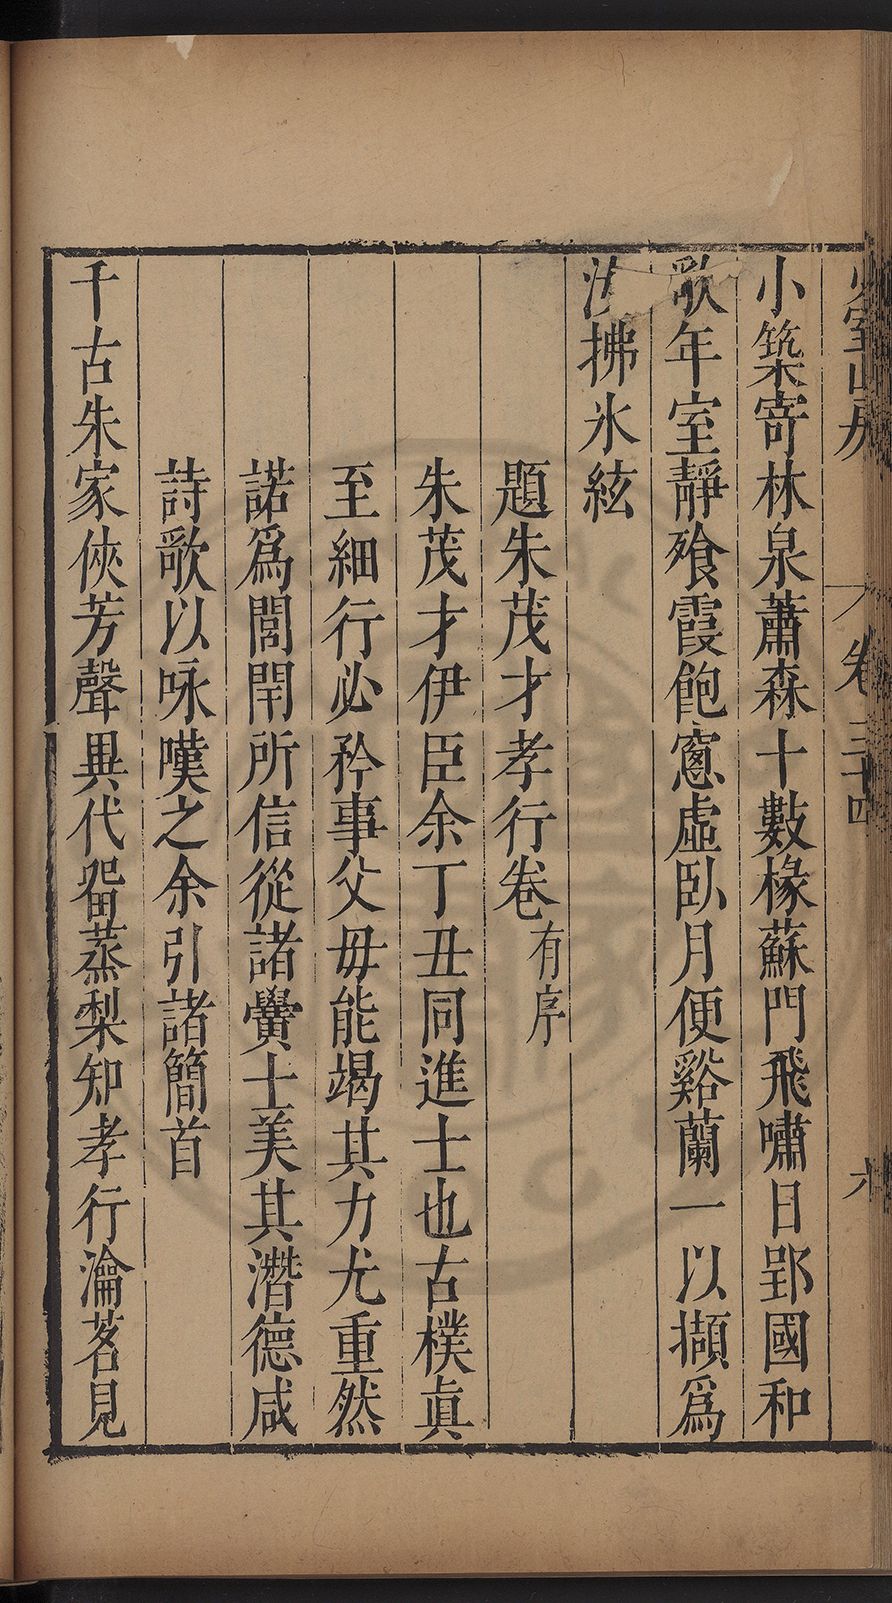 少室山房 卷三十四 六
小築寄林泉蕭森十數椽蘇門飛嘯日郢國和
歌年室靜飱霞飽窻虛臥月便谿蘭一以擷爲
汝拂氷絃
題朱茂才孝行卷有序
朱茂才伊臣余丁丑同進士也古樸眞
至細行必矜事父毋能竭其力尤重然
諾爲閭閈所信從諸黌士美其潛德咸
詩歌以咏嘆之余引諸簡首
千古朱家俠芳聲異代畱蒸梨知孝行瀹茗見